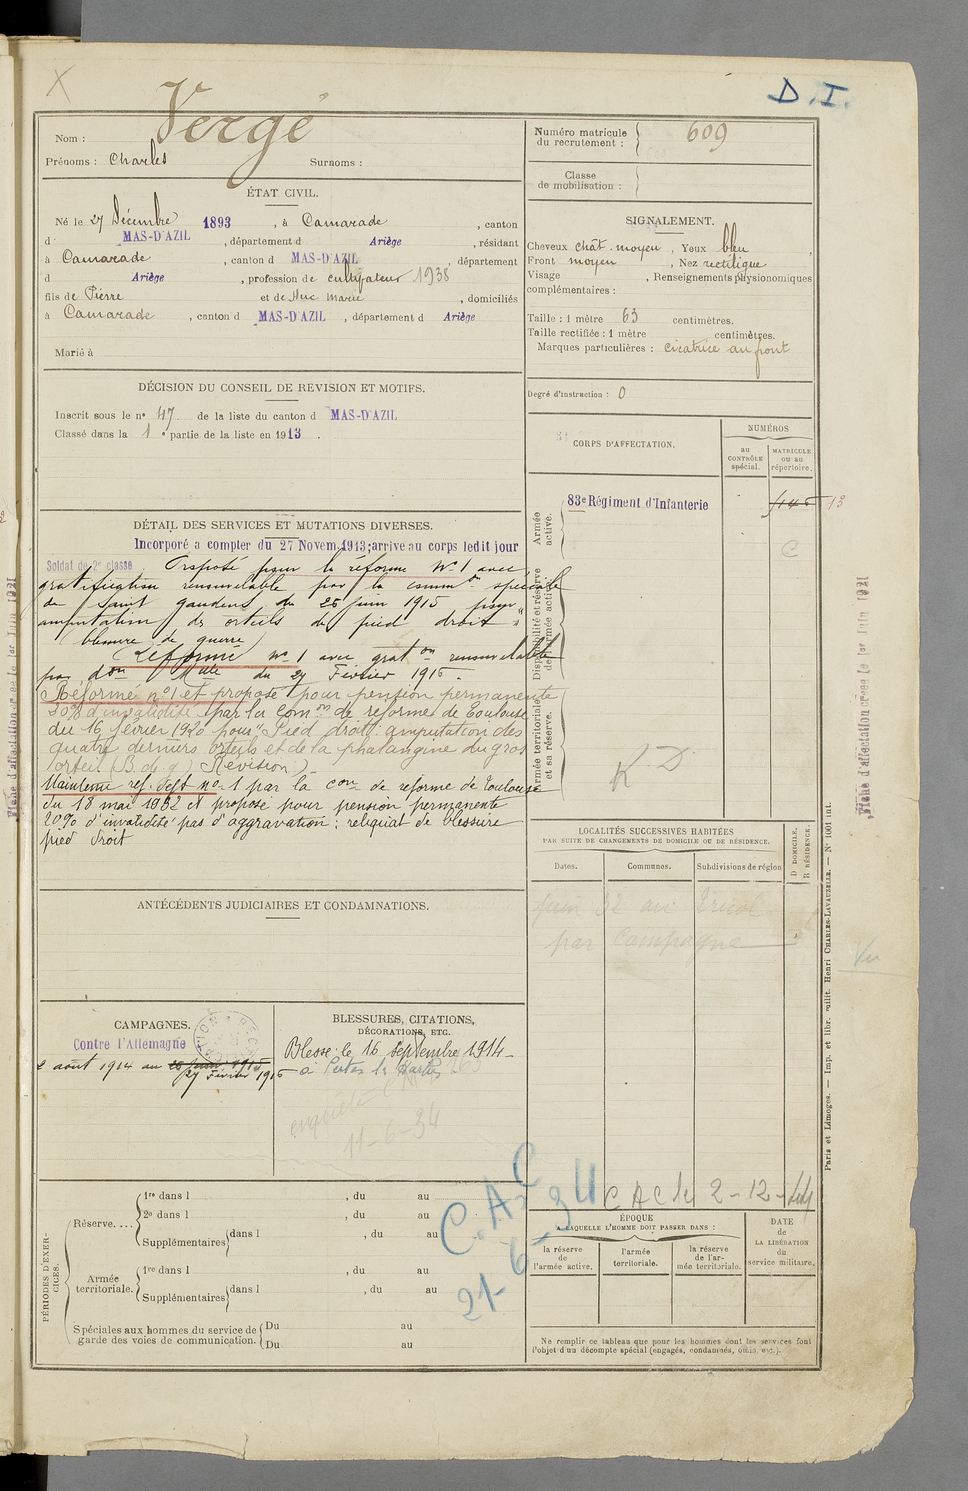 D. I.
Nom : Vergé
Prénoms : Charles Surnoms :
ÉTAT CIVIL.
Né le 27 Décembre 1893, à Camarade, canton
d MAS-D'AZIL, département d Ariège, résidant
à Camarade, canton d MAS-D'AZIL, département
d Ariège, profession de cultivateur 1938
fils de Pierre et de Huc Marie, domiciliés
à Camarade, canton d MAS-D'AZIL, département d Ariège
Marié à
DÉCISION DU CONSEIL DE REVISION ET MOTIFS.
Inscrit sous le nº 47 de la liste du canton d MAS-D'AZIL
Classé dans la 1e partie de la liste en 1913.
DÉTAIL DES SERVICES ET MUTATIONS DIVERSES.
Incorporé a compter du 27 Novem. 1913; arrive au corps ledit jour
Soldat de 2e classe. Proposé pour la réforme Nº 1 avec
gratification renouvelable par la common spéciale
de Saint gaudens du 26 juin 1915 pour
amputation de orteils du pied droit
blessure de guerre
Réformé nº 1 avec graton renouvelable
par don du 27 Février 1916.
Réformé nº1 et proposé pour pension permanente
par la Comon de reforme de Toulouse
du 16 février 1920 pour "Pied droit: amputation des
quatre derniers orteils et de la phalangine du gros
orteil (B. de g) Révision)
Maintenu réf. déft nº 1 par la con de reforme de Toulouse
du 18 mai 1932 et proposé pour pension permanente
20% d'invalidité pas d'aggravation : reliquat de blessure
pied droit
ANTÉCÉDENTS JUDICIAIRES ET CONDAMNATIONS.
CAMPAGNES.
Contre l'Allemagne
2 août 1914 au 26 juin 1915
27 Février 1916
BLESSURES, CITATIONS,
DÉCORATIONS, ETC.
Blessé le 16 Septembre 1914
à
enquête
11-6-34
PÉRIODES D'EXERCICES.
Réserve....
1re dans l , du au
2e dans l , du au
Supplémentaires dans l , du au
Armée territoriale.
1re dans l , du au
Supplémentaires dans l , du au
Spéciales aux hommes du service de garde des voies de communication.
Du au
Du au
C.A.C
21-6-34
Numéro matricule du recrutement : 609
Classe de mobilisation :
SIGNALEMENT.
Cheveux chât. moyen, Yeux bleu
Front moyen, Nez rectiligne
Visage , Renseignements physionomiques
complémentaires :
Taille : 1 mètre 63 centimètres.
Taille rectifiée : 1 mètre centimètres.
Marques particulières : cicatrice au front
Degré d'instruction : 0
CORPS D'AFFECTATION.
NUMÉROS
au CONTRÔLE spécial.
MATRICULE ou au répertoire.
Armée active.
83e Régiment d'Infanterie
13
C
Disponibilité et réserve de l'armée active.
Armée territoriale et sa réserve.
R.D.
LOCALITÉS SUCCESSIVES HABITÉES
PAR SUITE DE CHANGEMENTS DE DOMICILE OU DE RÉSIDENCE.
Dates. Communes. Subdivisions de région
D DOMICILE. R RÉSIDENCE.
par Campagne
C A C le 2-12-
ÉPOQUE
A LAQUELLE L'HOMME DOIT PASSER DANS :
la réserve de l'armée active.
l'armée territoriale.
la réserve de l'armée territoriale.
DATE de LA LIBÉRATION du service militaire.
Ne remplir ce tableau que pour les hommes dont les services font
l'objet d'un décompte spécial (engagés, condamnés, omis, etc.).
Paris et Limoges. — Imp. et libr. milit. Henri CHARLES-LAVAUZELLE. — Nº 1001 int.
Fiche d'affectation créée le 1er Juin 1921
Fiche d'affectation créée le 1er Juin 1921
Vu